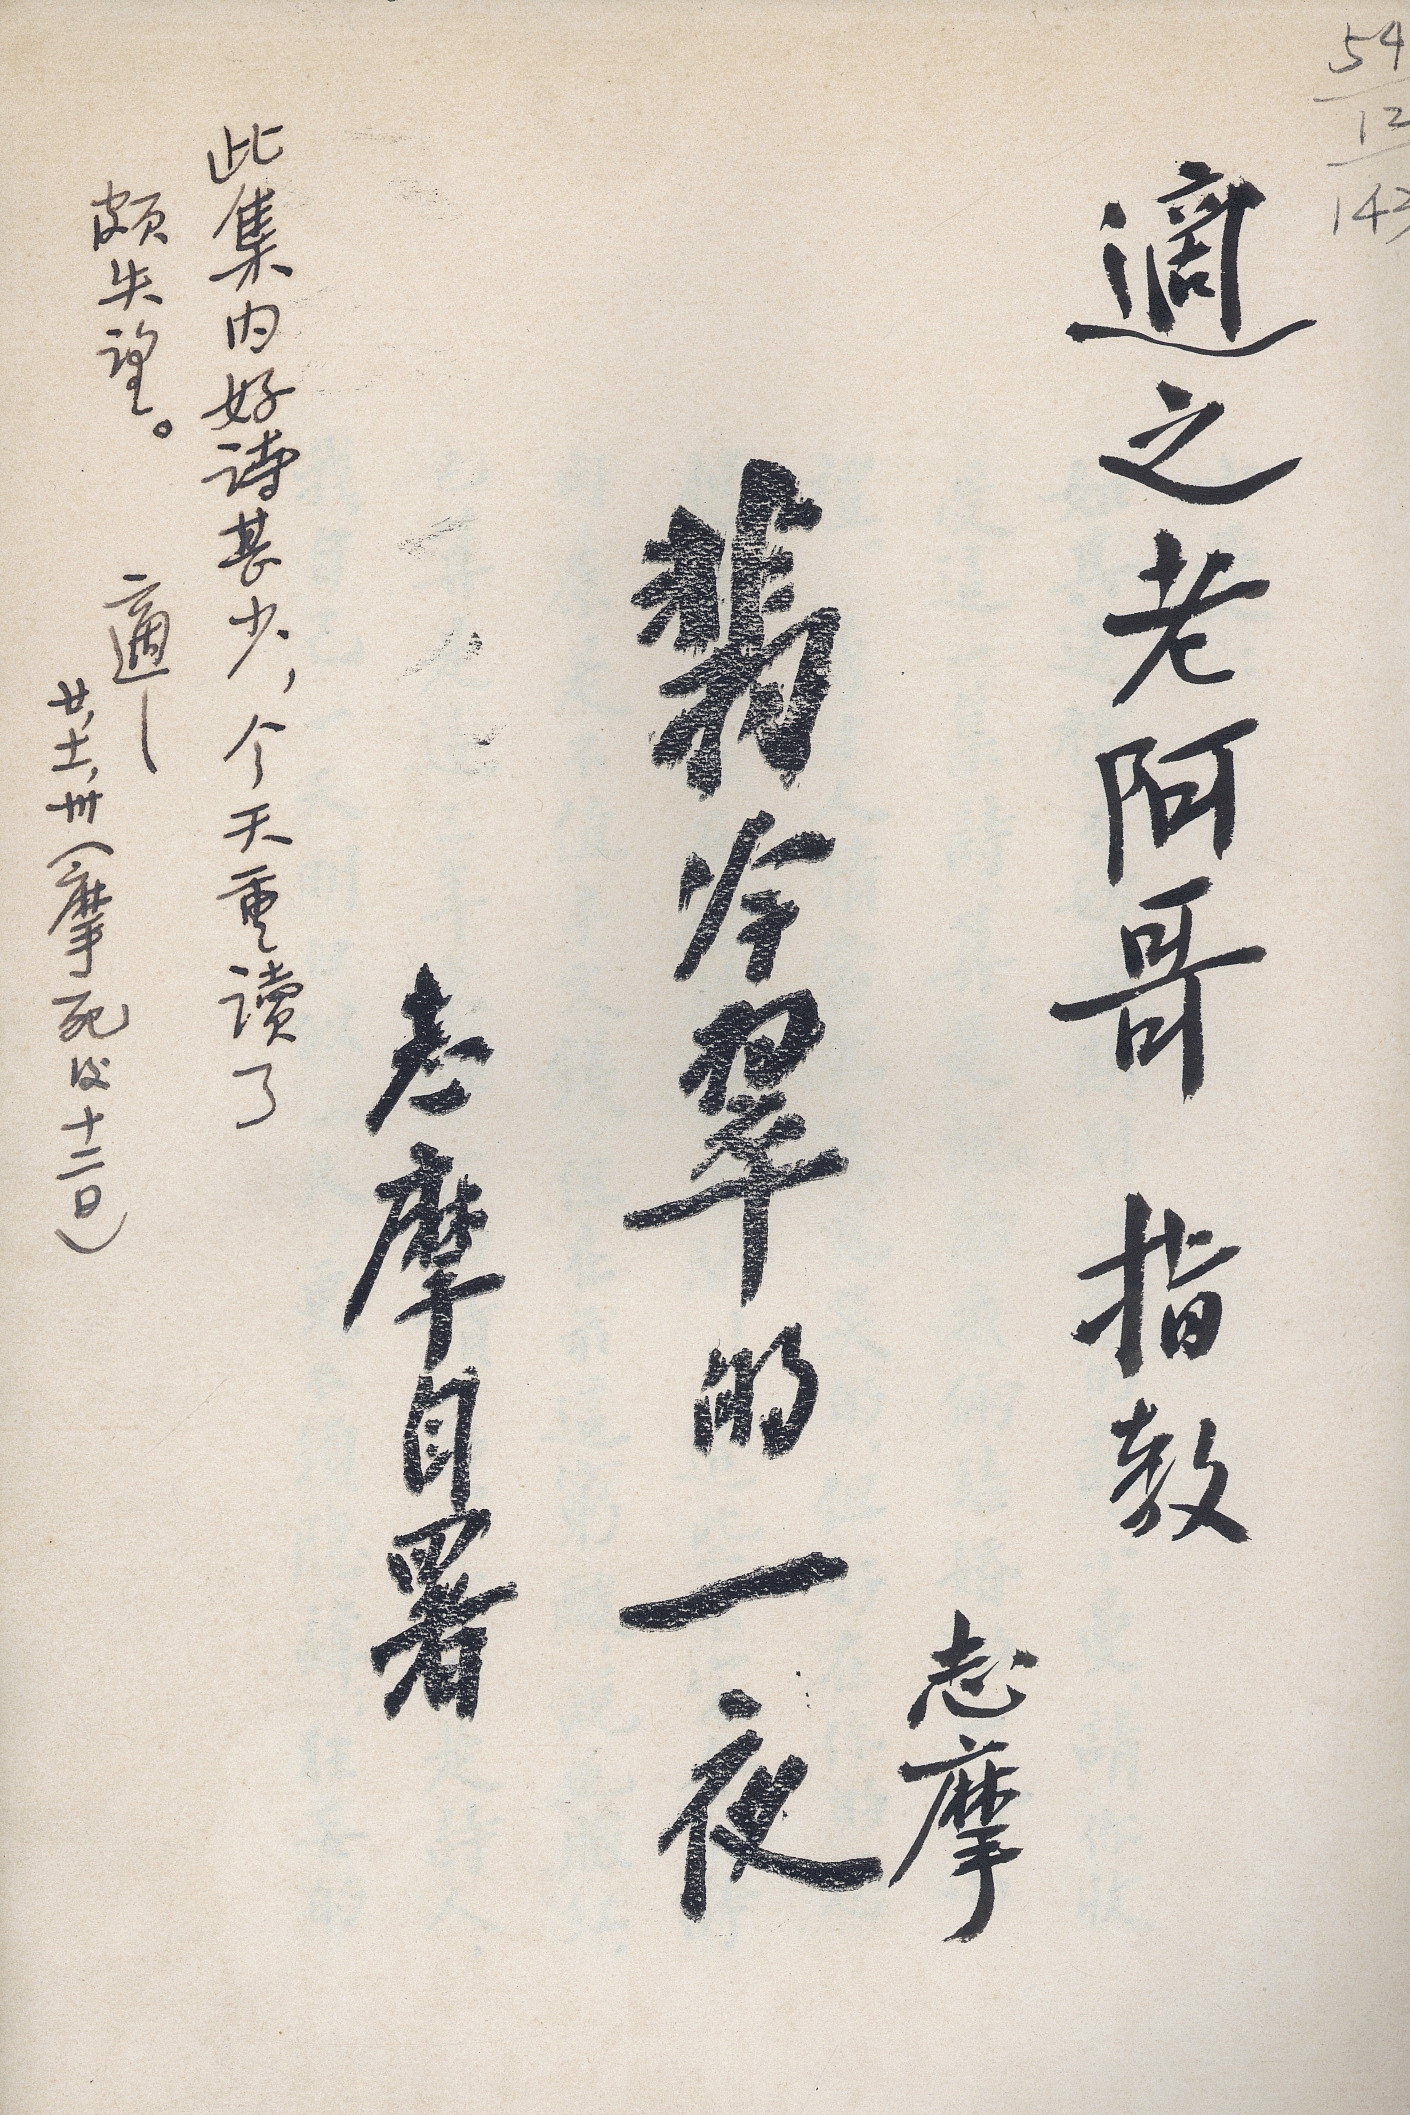 54
12
142
適之老阿哥 指教
志摩
翡冷翠的一夜
志摩自署
此集内好诗甚少，今天重读了
颇失望。
適
廿，十一，卅（摩死後十二日）